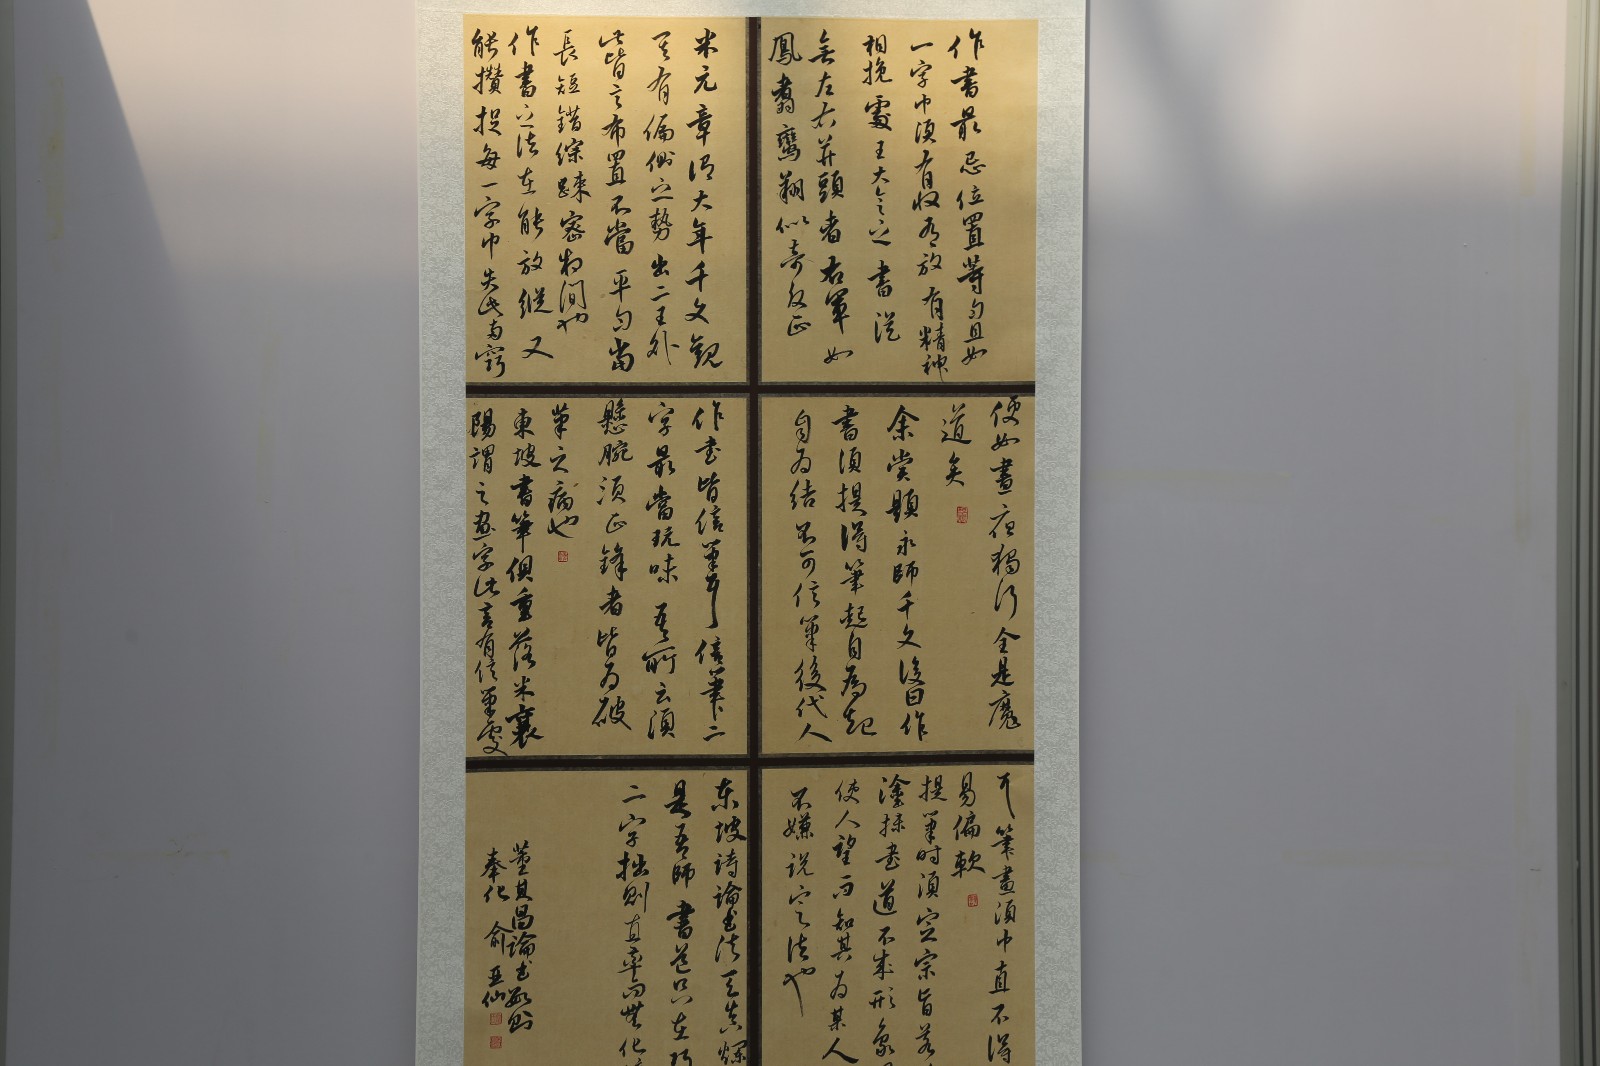 作書最忌位置等勻且如
一字中須有收有放有精神
相挽處王大令之書從
無左右并頭者右軍如
鳳翥鸞翔似奇反正
米元章謂大年千文觀
其有偏側之勢出二王外
此皆言布置不當平勻當
長短錯綜疎密相間也
作書之法在能放縱又
能攢捉每一字中失此兩竅
便如晝夜獨行全是魔
道矣
余嘗題永師千文後曰作
書須提得筆起自為起
自为結不可信筆後代人
作书皆信筆耳信筆二
字最當玩味吾所云須
懸腕須正鋒者皆为破
筆之病也
東坡書筆俱重落米襄
陽謂之畫字此言有信筆處
凡筆畫須中直不得
易偏軟
提筆时須定宗旨若
塗抹書道不成形象
使人望而知其为某人
不嫌说定法也
東坡詩論书法天真爛
是吾師書道只在巧
二字拙则直率而無化
董其昌論书數则
奉化俞亚仙